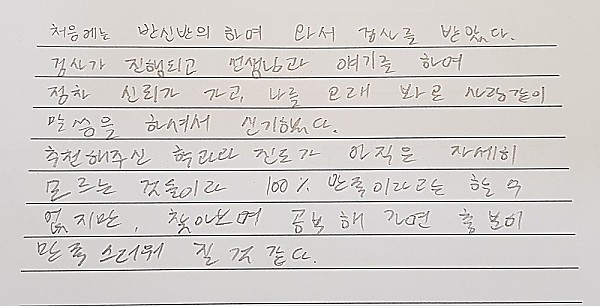 처음에는 반신반의 하며 와서 검사를 받았다.
검사가 진행되고 선생님과 얘기를 하며
점차 신뢰가 가고, 나를 오래 봐온 사람같이
말씀을 하셔서 신기했다.
추천해주신 학과과 진로가 아직은 자세히
모르는 것들이라 100% 만족이라고는 할 수
없지만, 찾아보며 공부해 가면 충분히
만족스러워 질 것 같다.